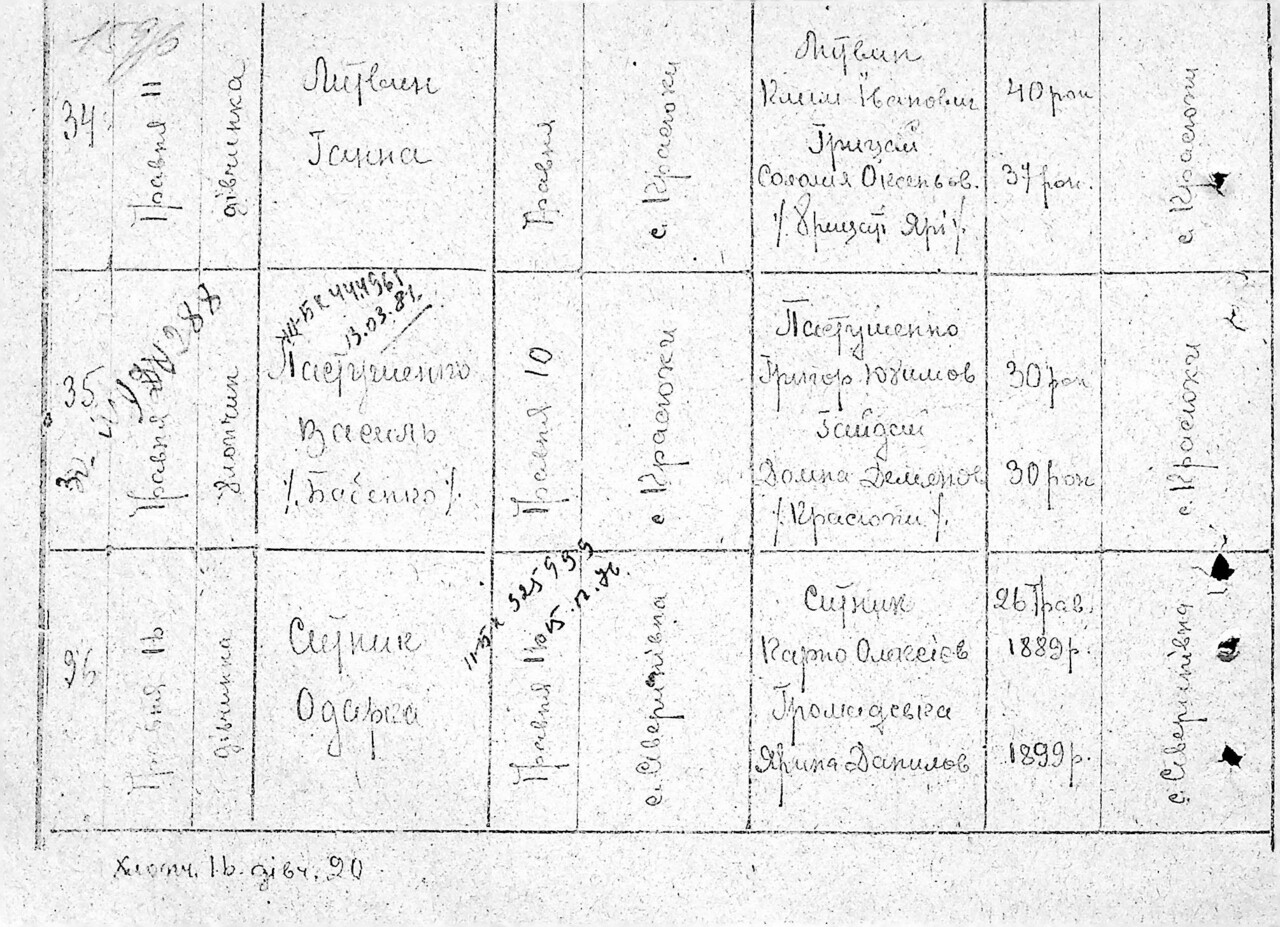 34
Травня 11
дівчинка
Литвин
Ганна
Травня
с. Краснюки
Литвин
Клим Іванович
Грицай
Соломія Оксеньов.
/. Грицай Ярі /.
40 рок
37 рок.
с. Краснюки
35
Травня
N 288
Хлопчик
13.03.81.
Пастушенко
Василь
/. Баченко /.
Травня 10
с Краснюки
Пастушенко
Григор Юхимов
Гайдай
Домна Демянов
/. Краснюки /.
30 рок
30 рок
с. Краснюки
36
Травня 16
дівчинка
Ситник
Одарка
325999
Травня 16
с. Северинівка
Ситник
Карпо Олексієв
Громадська
Ярина Данилов
26 Трав.
1889 р.
1899 р.
с. Северинівка
Хлопч. 16. дівч. 20